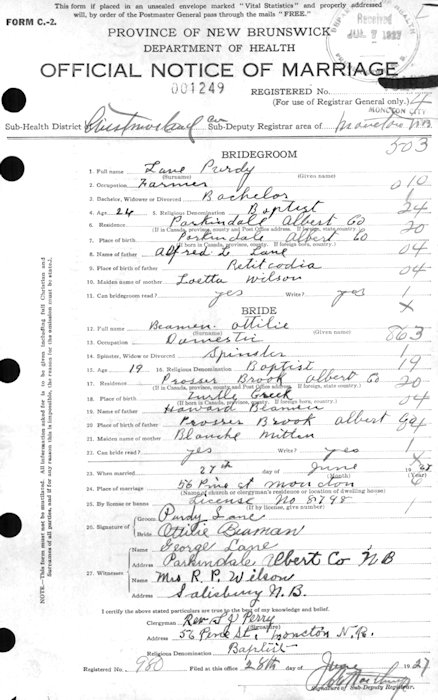 This form if placed in an unsealed envelope marked "Vital Statistics" and properly addressed
will, by order of the Postmaster General pass through the mails "FREE."
FORM C.-2.
Received
JUL 7 1927
PROVINCE OF NEW BRUNSWICK
DEPARTMENT OF HEALTH
OFFICIAL NOTICE OF MARRIAGE
001249
REGISTERED No.
(For use of Registrar General only.)
MONCTON CITY
Sub-Health District Westmorland Sub-Deputy Registrar area of Moncton N.B.
503
BRIDEGROOM
1. Full name Lane Purdy
(Surname) (Given name)
2. Occupation Farmer 010
3. Bachelor, Widower or Divorced Bachelor 1
4. Age 24 5. Religious Denomination Baptist 24
6. Residence Parkindale Albert Co 20
(If in Canada, province, county and Post Office address. If foreign, state country)
7. Place of birth Parkindale Albert Co 04
(If born in Canada, province, county. If foreign born, country)
8. Name of father Alfred L Lane 04
9. Place of birth of father Petitcodia 04
10. Maiden name of mother Loetta Wilson
11. Can bridegroom read? yes Write? yes 1
X
BRIDE
12. Full name Beamen Ottilie
(Surname) (Given name)
13. Occupation Domestic 863
14. Spinster, Widow or Divorced Spinster 1
15. Age 19 16. Religious Denomination Baptist 19
17. Residence Prosser Brook Albert Co 20
18. Place of birth Turtle Creek 04
(If born in Canada, province, county. If foreign born, country)
19. Name of father Howard Beamen
20. Place of birth of father Prosser Brook Albert Co
21. Maiden name of mother Blanche Mitten
22. Can bride read? yes Write? yes 1
X
23. When married 27th June
(Month)
24. Place of marriage 56 Pine st Moncton
(Name of church or clergyman's residence or location of dwelling house)
25. By license or banns License No 8798 1
(If by license, give number)
26. Signature of Groom Purdy Lane
Bride Ottilie Beaman
27. Witnesses Name George Lane
Address Parkindale Albert Co N B
Name Mrs R. P. Wilson
Address Salisbury N.B.
I certify the above stated particulars are true to the best of my knowledge and belief.
Clergyman Rev Perry
(Signature)
Address 56 Pine St, Moncton N.B.
Religious Denomination Baptist
Registered No. 980 Filed at this office 28th June 1927
Signature of Sub-Deputy Registrar.
NOTE—This form must not be mutilated. All information asked for is to be given including full Christian and
Surnames of all parties, and if for any reason this is impossible, the reason for the omission must be stated.